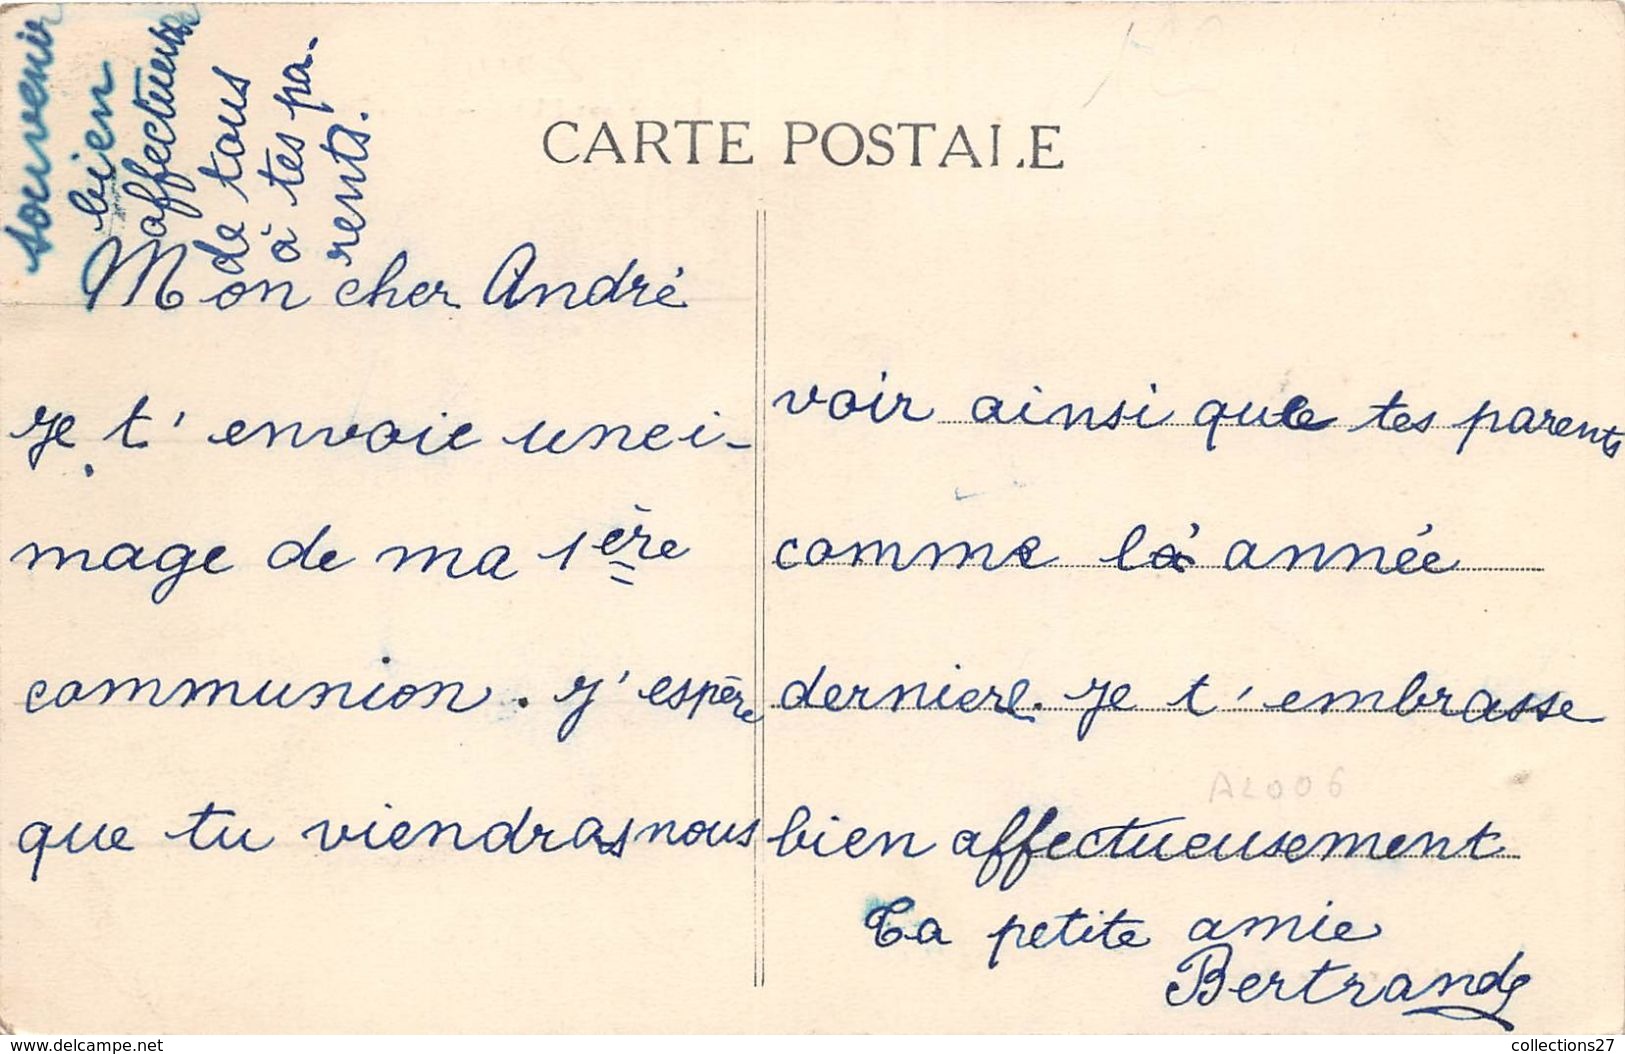 souvenir
bien
affectueux
de tous
à tes pa-
rents.
CARTE POSTALE
Mon cher André
Je t'envoie une i-
mage de ma 1ère
communion. J'espère
que tu viendras nous
voir ainsi que tes parents
comme l'année
derniere. Je t'embrasse
bien affectueusement
Ta petite amie
Bertrande
AL006
www.delcampe.net
collections27